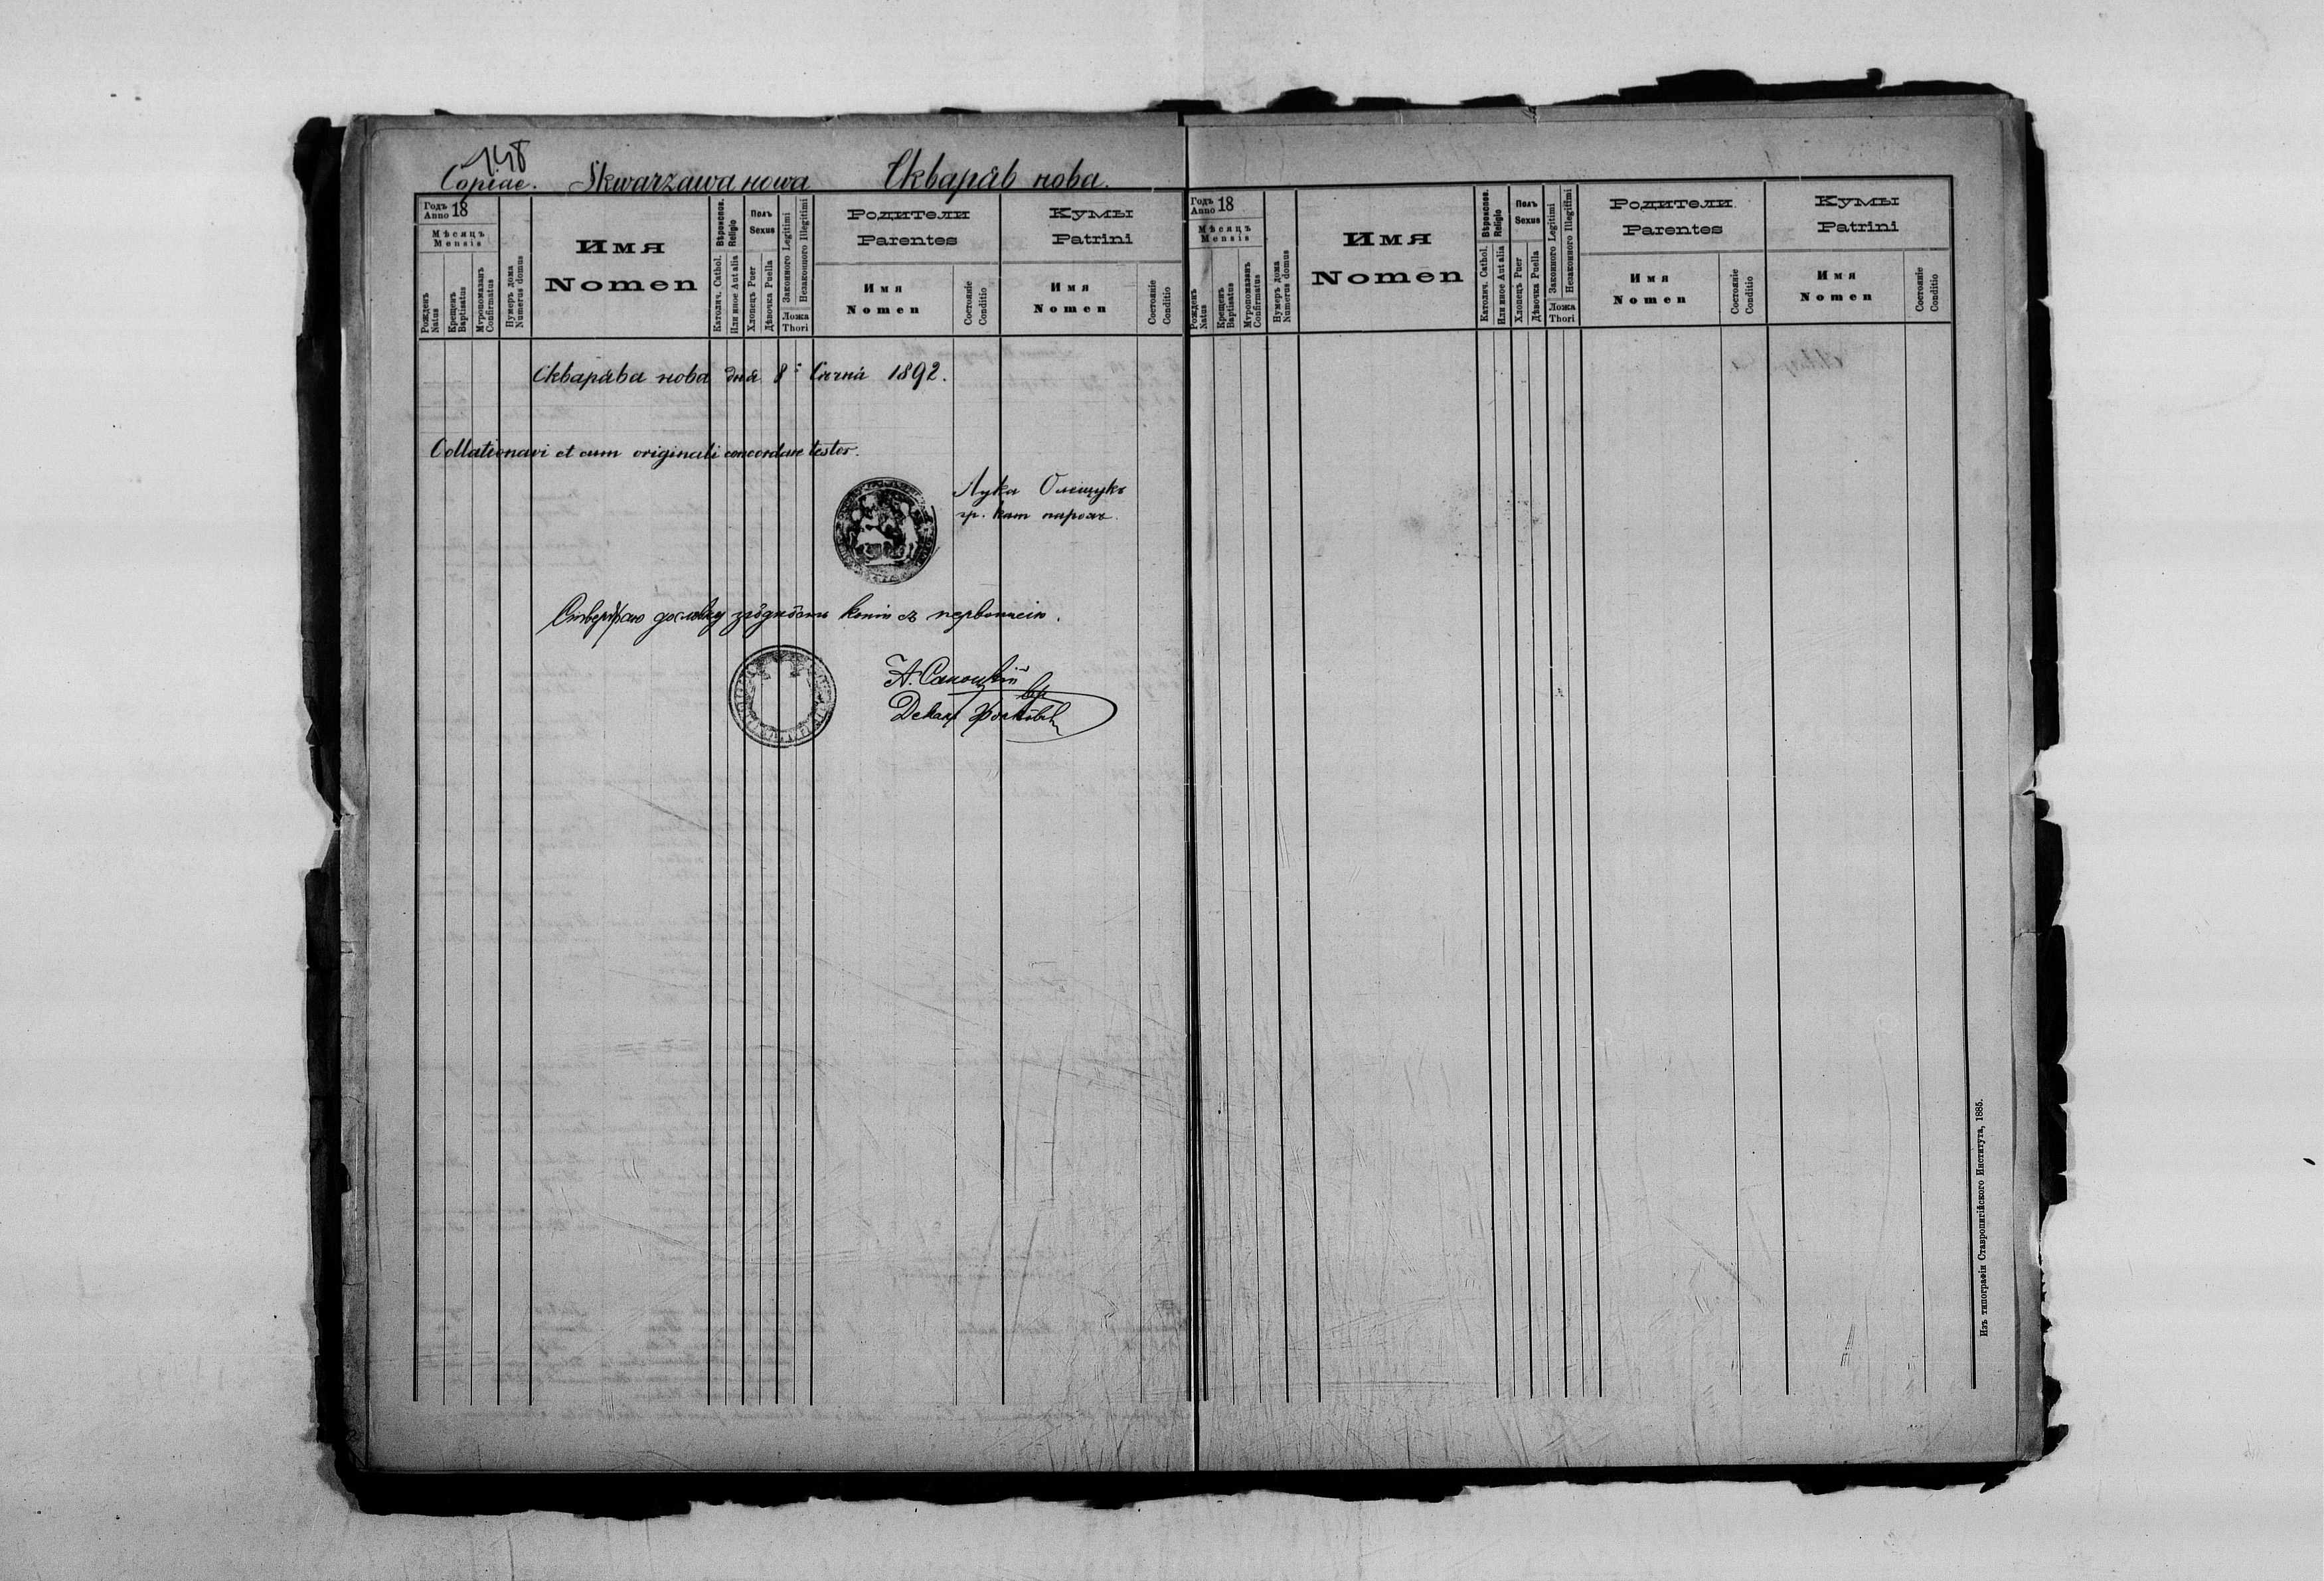 148
Copiae. Skwarzawa nowa Скварѣв нова.
Годъ Anno 18
Мѣсяцъ
Mensis
Рожденъ Natus
Крещенъ Baptisatus
Мvропомазанъ Confirmatus
Нумеръ дома Numerus domus
Имя
Nomen
Вѣроиспов. Religio
Католич. Cathol.
Или иное Aut alia
Полъ
Sexus
Хлопецъ Puer
Дѣвочка Puella
Законного Legitimi
Незаконного Illegitimi
Ложа
Thori
Родители
Parentes
Имя
Nomen
Состояніе
Conditio
Кумы
Patrini
Имя
Nomen
Состояніе
Conditio
Скварѣва нова дня 8 Січня 1892.
Collationavi et cum originali concordare testor.
Лука Олещукъ
гр. кат парохъ.
Стверджаю дословну згôднôсть копіи съ первописію.
А. Саноцкій
Декан
Годъ Anno 18
Мѣсяцъ
Mensis
Рожденъ Natus
Крещенъ Baptisatus
Мvропомазанъ Confirmatus
Нумеръ дома Numerus domus
Имя
Nomen
Вѣроиспов. Religio
Католич. Cathol.
Или иное Aut alia
Полъ
Sexus
Хлопецъ Puer
Дѣвочка Puella
Законного Legitimi
Незаконного Illegitimi
Ложа
Thori
Родители
Parentes
Имя
Nomen
Состояніе
Conditio
Кумы
Patrini
Имя
Nomen
Состояніе
Conditio
Изъ типографіи Ставропигійского Института, 1885.